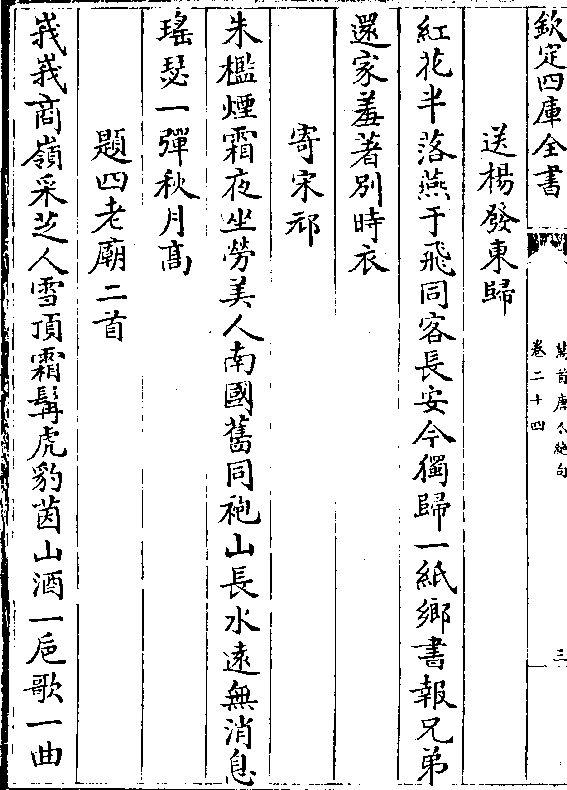 欽定四庫全書
萬首唐人絕句
卷二十四
三
送楊發東歸
紅花半落燕于飛同客長安今獨歸一紙鄉書報兄弟
還家羞著別時衣
寄宋邧
朱檻煙霜夜坐勞美人南國舊同袍山長水遠無消息
瑤瑟一彈秋月高
題四老廟二首
峩峩商嶺采芝人雪頂霜髯虎豹茵山酒一巵歌一曲